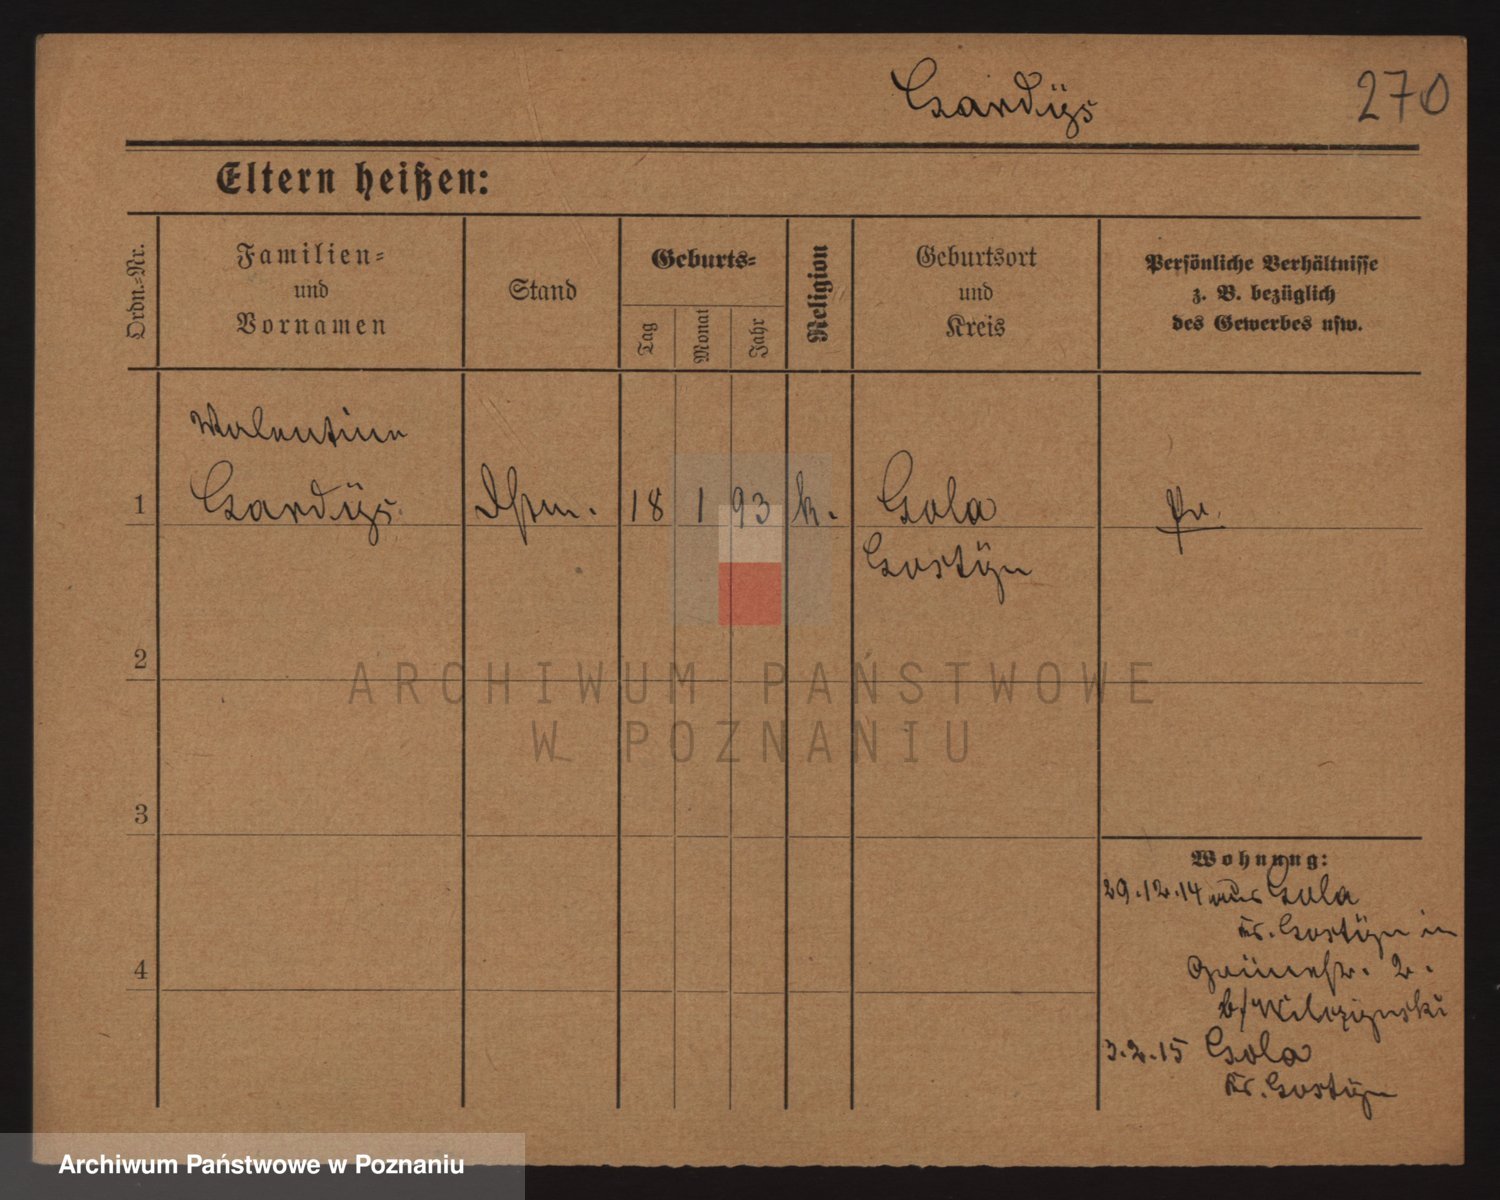 Gardyś
270
Eltern heißen:
Ordn.-Nr.
Familien-
und
Vornamen
Stand
Geburts-
Tag
Monat
Jahr
Religion
Geburtsort
und
Kreis
Persönliche Verhältnisse
z. B. bezüglich
des Gewerbes usw.
Valentine
1 Gardyś Dstm. 18 1 93 k. Gola Pr.
Gostyn
2
3
4
Wohnung:
29.12.14 aus Gola
Kr. Gostyn in
Grünestr. 2.
b/ Wilczynski
3.2.15 Gola
Kr. Gostyn
ARCHIWUM PAŃSTWOWE
W POZNANIU
Archiwum Państwowe w Poznaniu